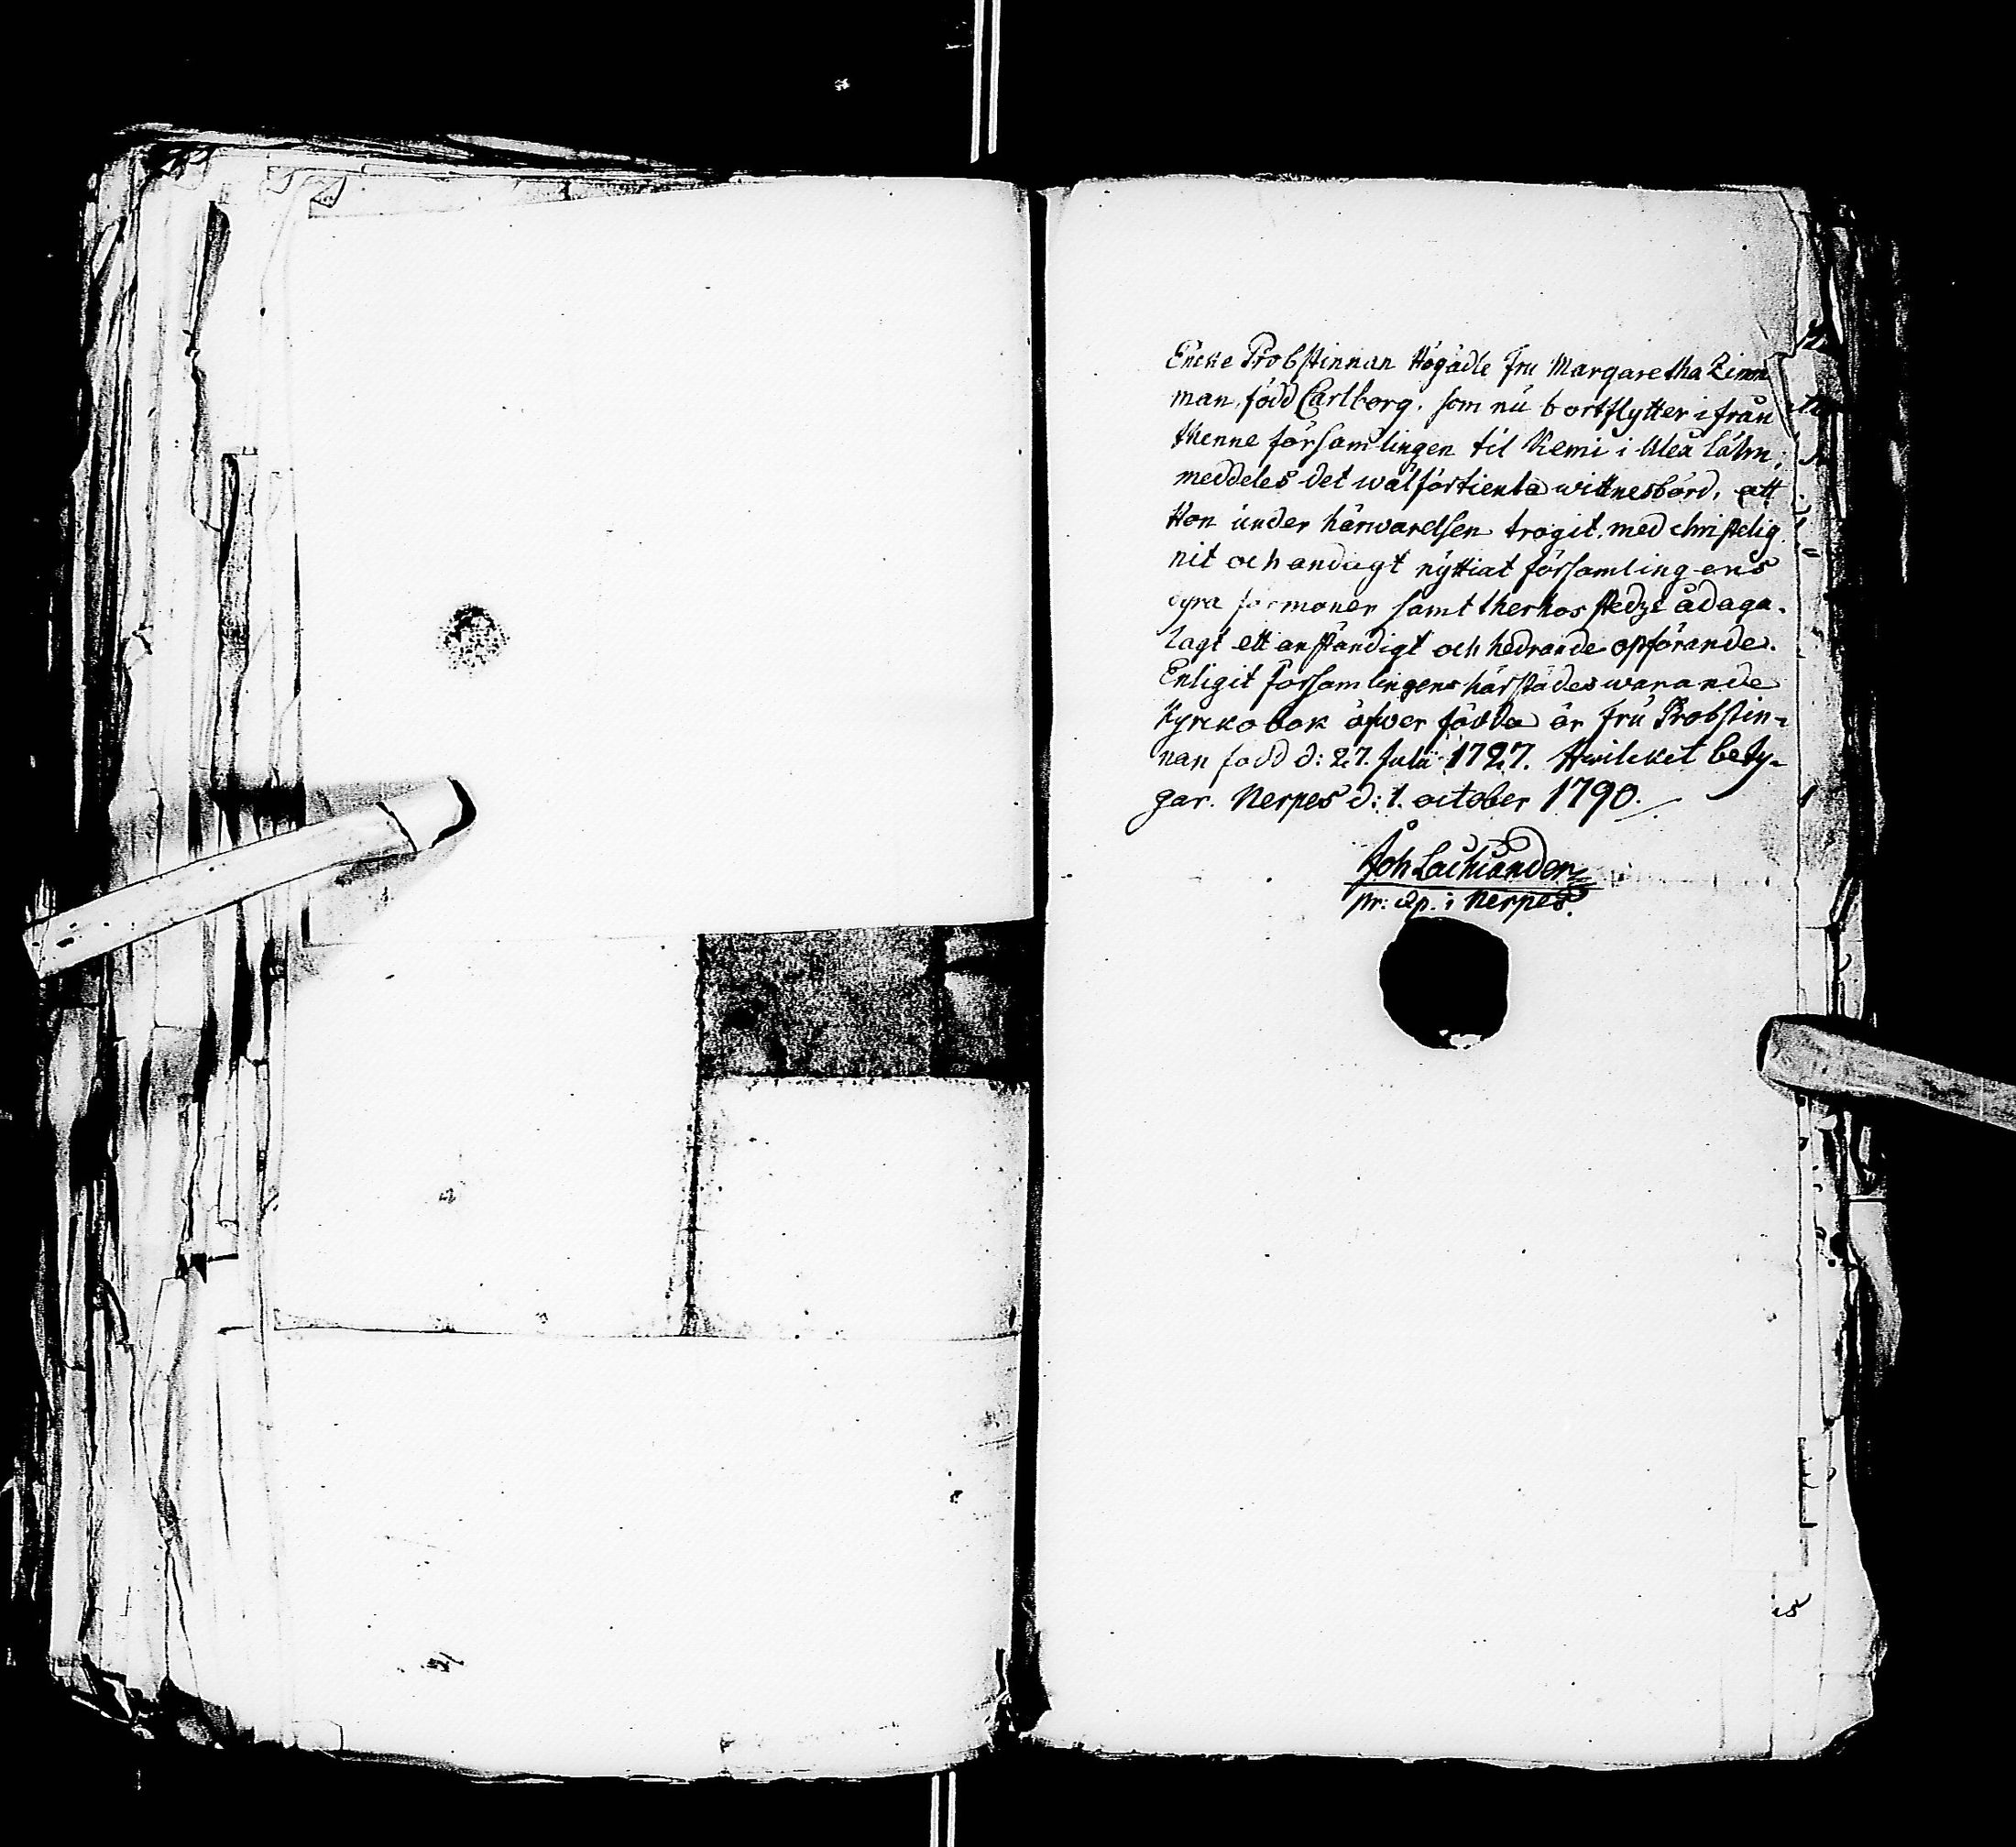 Encke Probstinnan Högädle Fru Margaretha Zimm
man, född Carlborg, som nú bortflytter ifrån
thenne församlingen til Kemi i Uleå Lähn;
meddeles det wälförtienta wittnesbörd, att
Hon under härwarelsen trägit, med christelig
nit och andagt nyttiat församlingens
dyra förmoner samt therhos stedze ådaga-
lagt ett anständigt och hedrande opförande.
Enligit Församlingens härstädes warande
Kyrckobok öfwer födda är Fru Probstin-
nan född d: 27. Julii 1727. Hwilcket bety-
gar. Nerpes d: 1. october 1790.
Joh Lachiander
pr: i Nerpes.